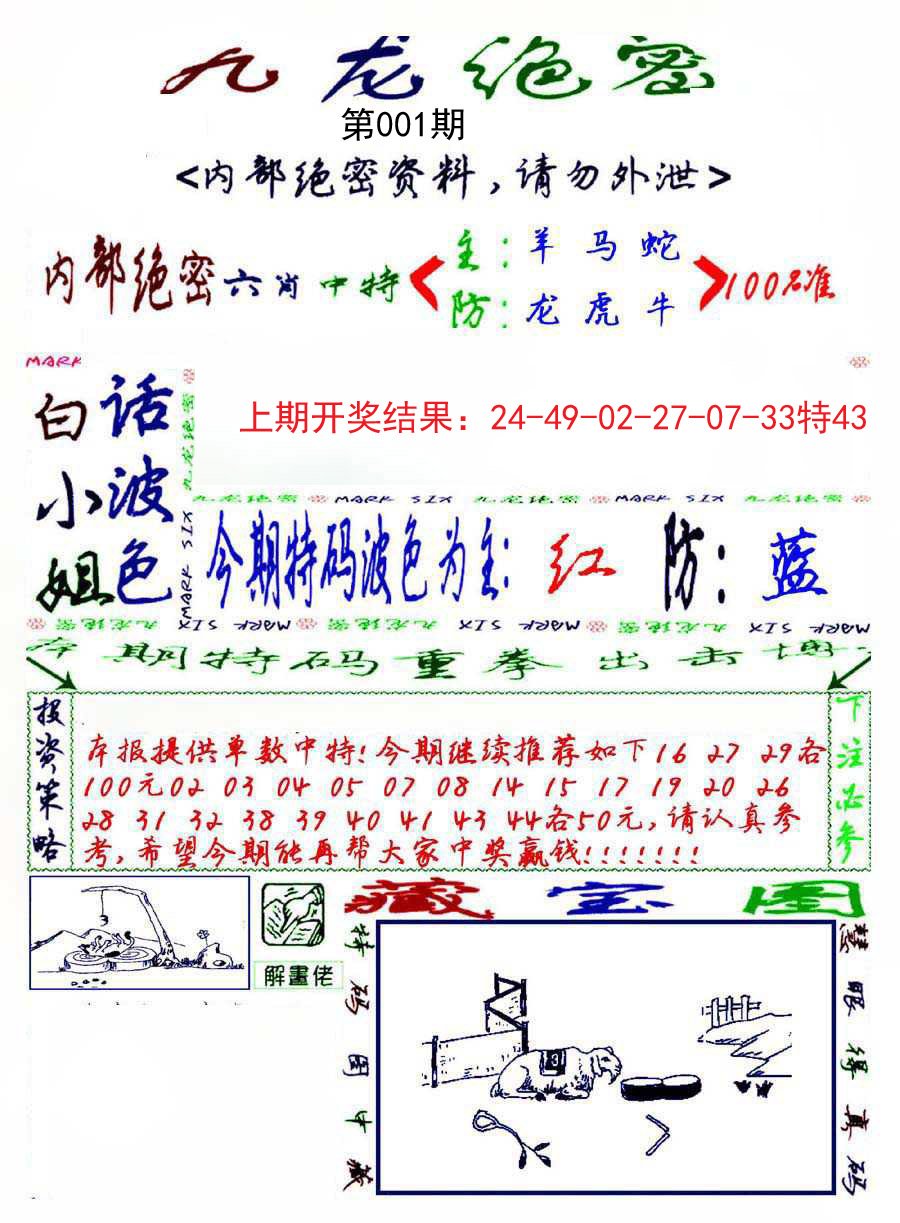 九龙绝密
第001期
<内部绝密资料,请勿外泄>
内部绝密六肖中特
主:羊马蛇
防:龙虎牛
100%准
MARK
白话
小波
姐色
上期开奖结果：24-49-02-27-07-33特43
九龙绝密
MARK SIX
九龙绝密 MARK SIX 九龙绝密 MARK SIX 九龙绝密
今期特码波色为主:红 防:蓝
九龙绝密 MARK SIX 九龙绝密 MARK SIX 九龙绝密 MARK SIX
本期特码重拳出击博
投资策略
本报提供单数中特!今期继续推荐如下16 27 29各
100元02 03 04 05 07 08 14 15 17 19 20 26
28 31 32 38 39 40 41 43 44各50元,请认真参
考,希望今期能再帮大家中奖赢钱!!!!!!!
下注必参
3
解畫佬
藏宝图
特码图中藏
3
慧眼得真码